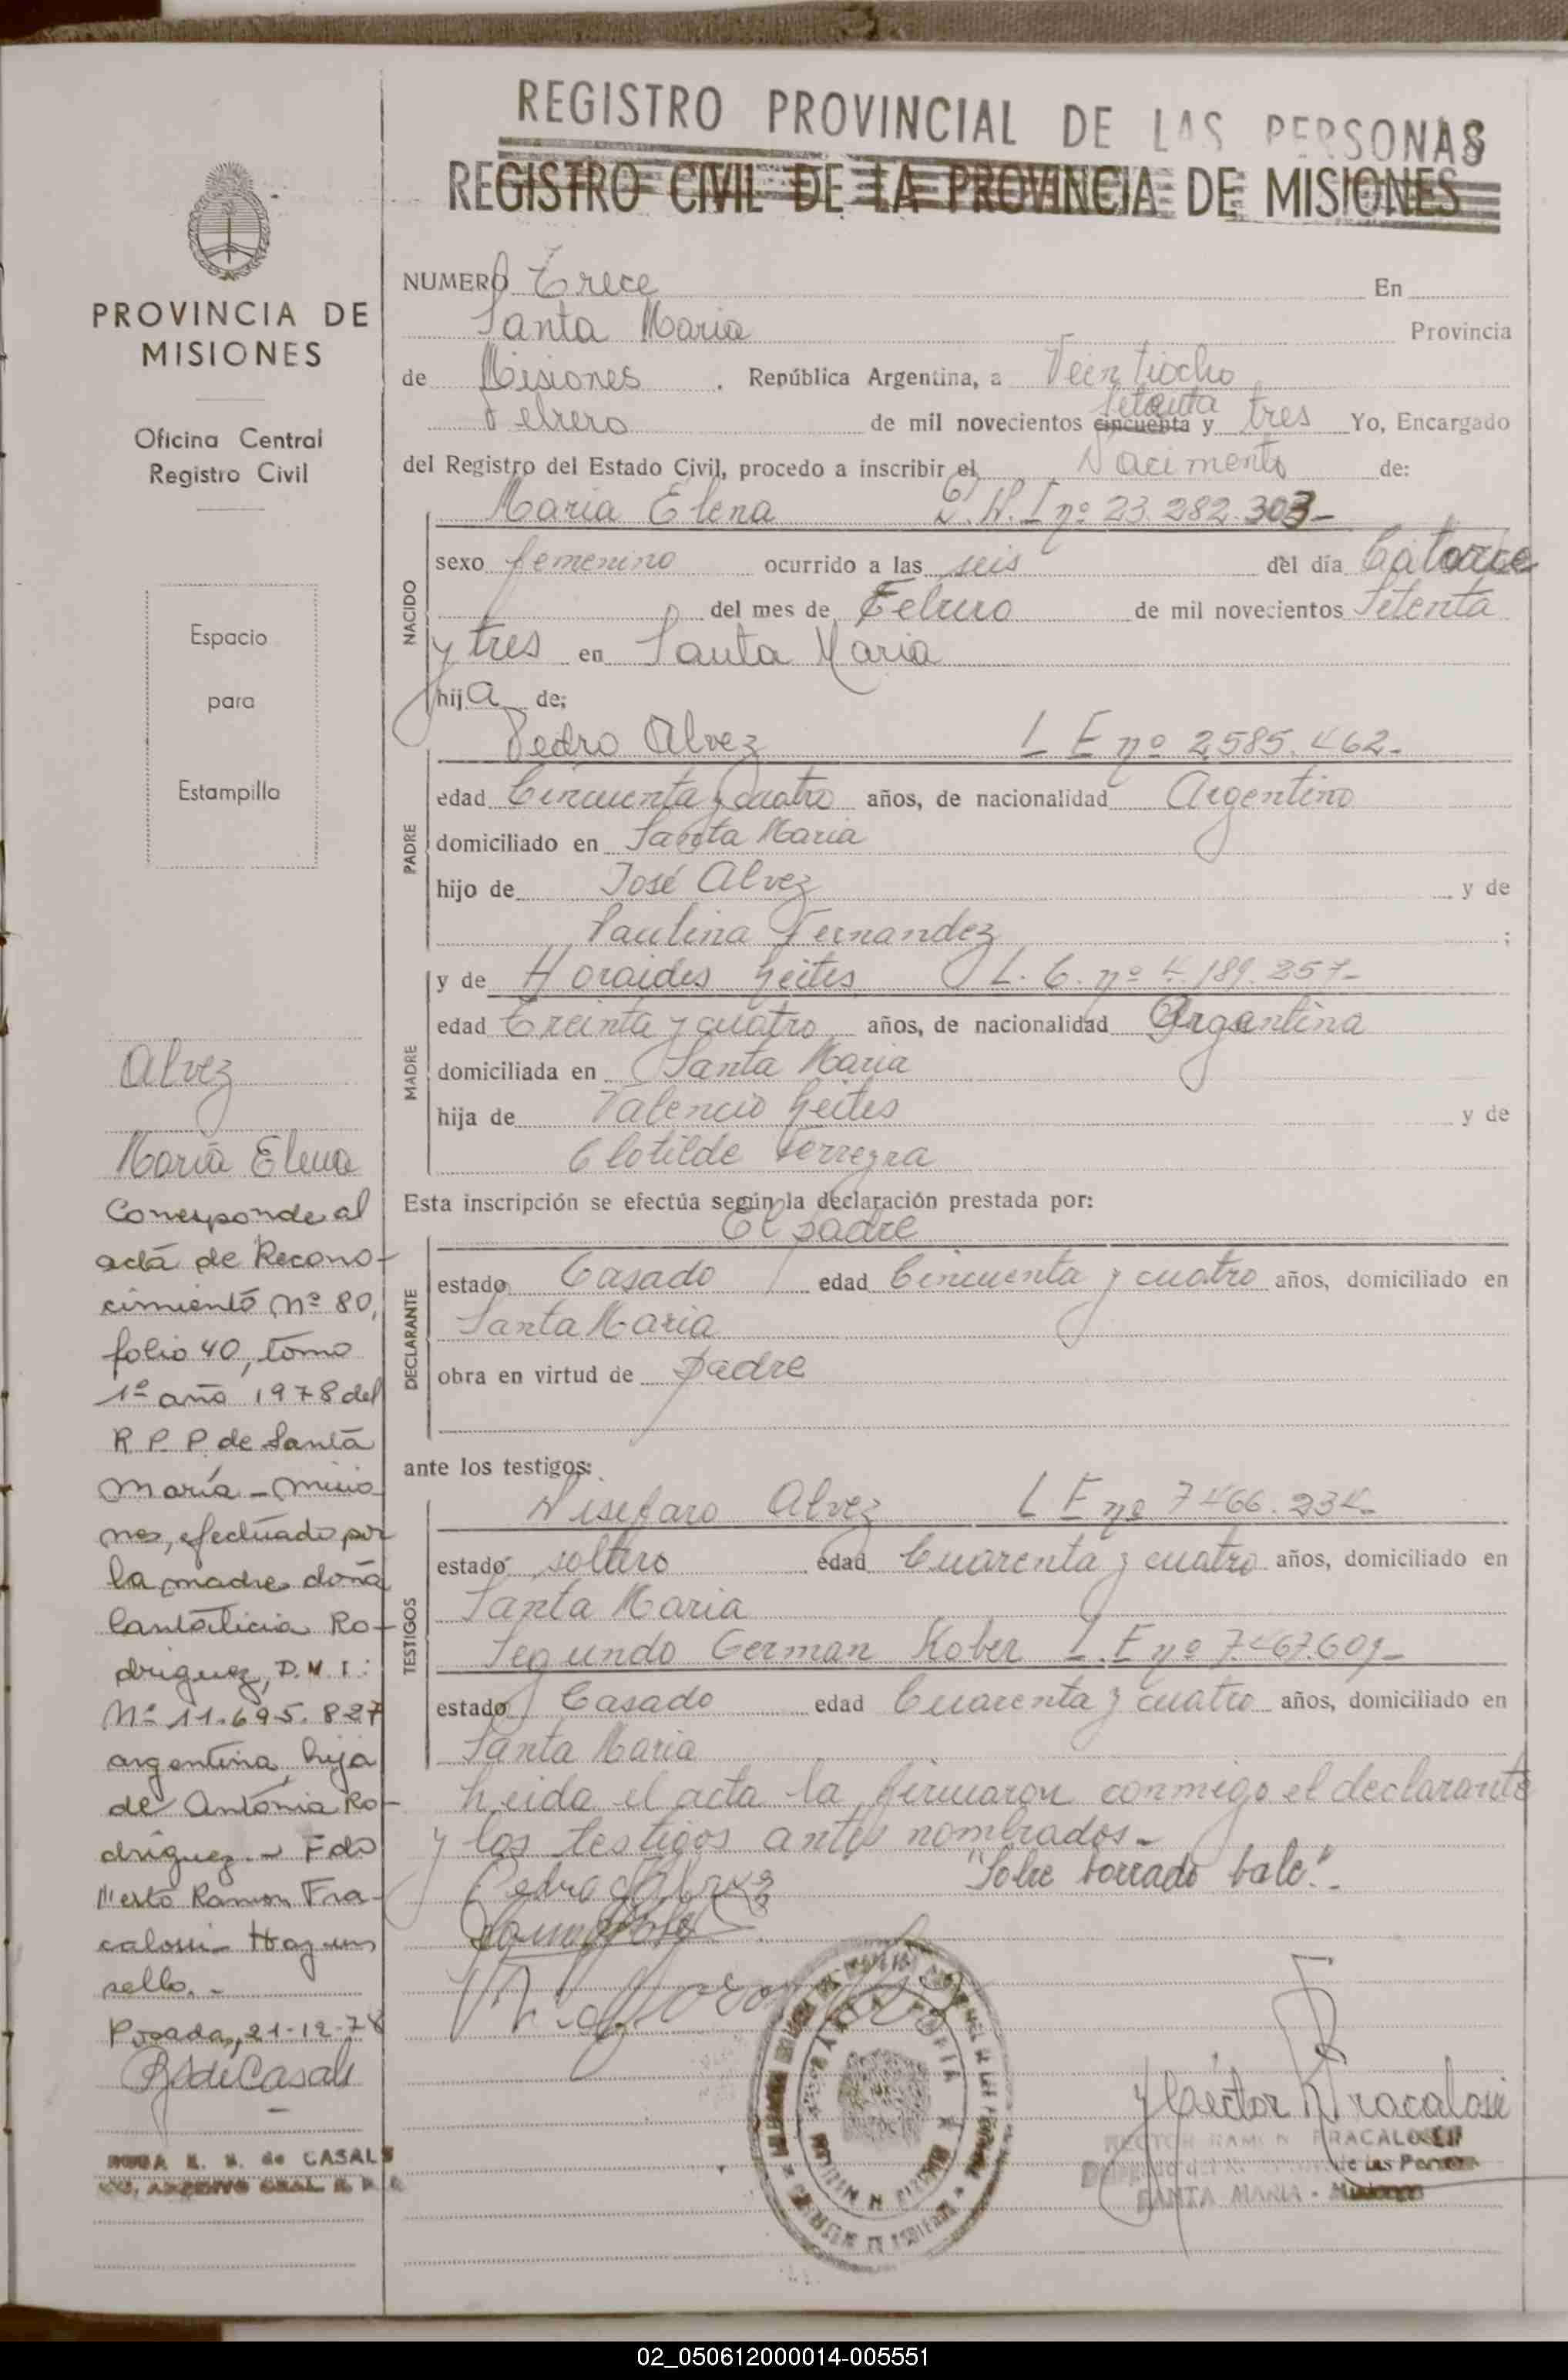 REGISTRO PROVINCIAL DE LAS PERSONAS
REGISTRO CIVIL DE LA PROVINCIA DE MISIONES
PROVINCIA DE
MISIONES
Oficina Central
Registro Civil
Espacio
para
Estampilla
Alvez
María Elena
Corresponde al
acta de Recono-
cimiento Nº 80,
folio 40, tomo
1º año 1978 del
R.P.P. de Santa
María - Misio
nes, efectuado por
la madre doña
Ro-
driguez, D.N.I.:
Nº 11.695.827
argentina, hija
de Antonia Ro-
driguez. - Fdo
Ramon Fra-
calossi - Hay un
sello. -
Posadas, 21-12-78
de Casals
de CASALS
NUMERO Trece En
Santa Maria Provincia
de Misiones . República Argentina, a Veintiocho
Febrero de mil novecientos cincuenta setenta y tres Yo, Encargado
del Registro del Estado Civil, procedo a inscribir el Nacimento de:
NACIDO
Maria Elena D.N.I nº 23.282.303-
sexo femenino ocurrido a las seis del día Catorce
del mes de Febrero de mil novecientos Setenta
y tres en Santa Maria
hija de;
PADRE
Pedro Alvez L E nº 2585.462-
edad Cincuenta y cuatro años, de nacionalidad Argentino
domiciliado en Santa Maria
hijo de José Alvez y de
Paulina Fernandez ;
MADRE
y de Horaides Leites L.C. nº 4.189.257-
edad Treinta y cuatro años, de nacionalidad Argentina
domiciliada en Santa Maria
hija de Valencio Leites y de
Clotilde Ferreyra
Esta inscripción se efectúa según la declaración prestada por:
DECLARANTE
El padre
estado Casado edad Cincuenta y cuatro años, domiciliado en
Santa Maria
obra en virtud de padre
ante los testigos:
TESTIGOS
Alvez L E nº 7466.234-
estado soltero edad Cuarenta y cuatro años, domiciliado en
Santa Maria
Segundo German Kober L.E nº 7.467.609-
estado Casado edad Cuarenta y cuatro años, domiciliado en
Santa Maria
Leida el acta la firmaron conmigo el declarante
y los testigos antes nombrados-
"Sobre borrado vale".-
Pedro Alvez
Hector R Fracalossi
HECTOR RAMON FRACALOSSI
de las Personas
SANTA MARIA - Misiones
02_050612000014-005551